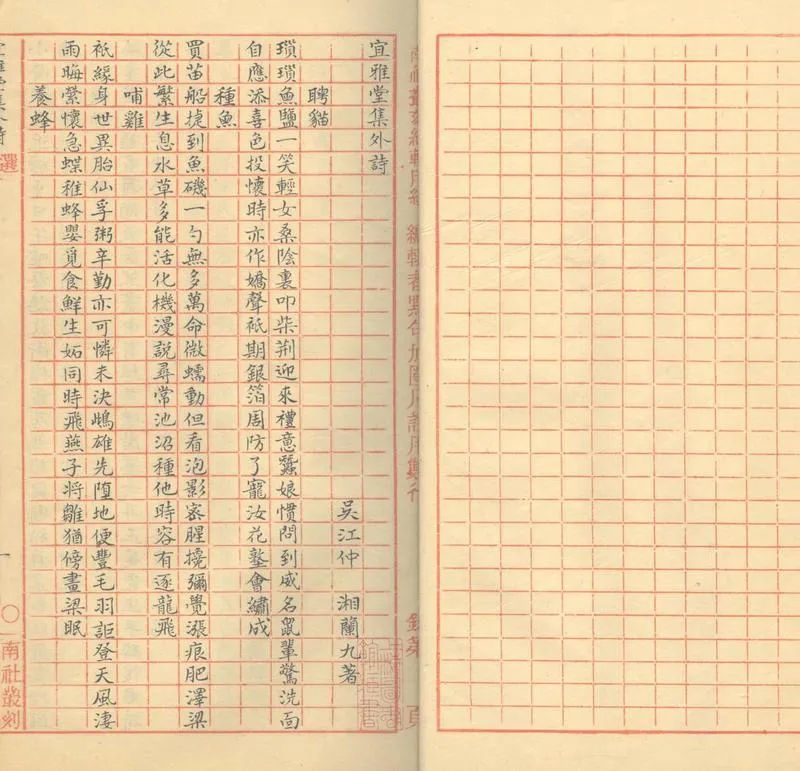 宜雅堂集外詩
吳江仲 湘蘭九著
聘貓
瑣瑣魚鹽一笑輕女桑陰裏叩柴荆迎來禮意蠶娘慣問到威名鼠輩驚洗面
自應添喜色投懷時亦作嬌聲衹期銀箔周防了寵汝花墪會繡成
種魚
買苗船捷到魚磯一勺無多萬命微蠕動但看泡影密腥撓彌覺漲痕肥澤梁
從此繁生息水草多能活化機漫說尋常池沼種他時容有逐龍飛
哺雞
衹緣身世異胎仙孚粥辛勤亦可憐未決鴂雄先墮地便豐毛羽詎登天風淒
雨晦縈懷急蝶稚蜂嬰覓食鮮生妬同時飛燕子將雛猶傍畫梁眠
養蜂
選
一
南社叢刻